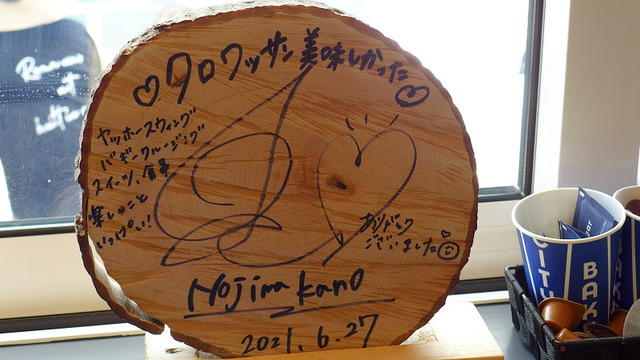 ♡クロワッサン美味しかった♡
ヤッホースウィング
バギークルージング
スイーツ、食事…
楽しいこと
いっぱい!!
ありがとう
ございました♡☺
Nojima kano
2021. 6. 27
CITY
BAK